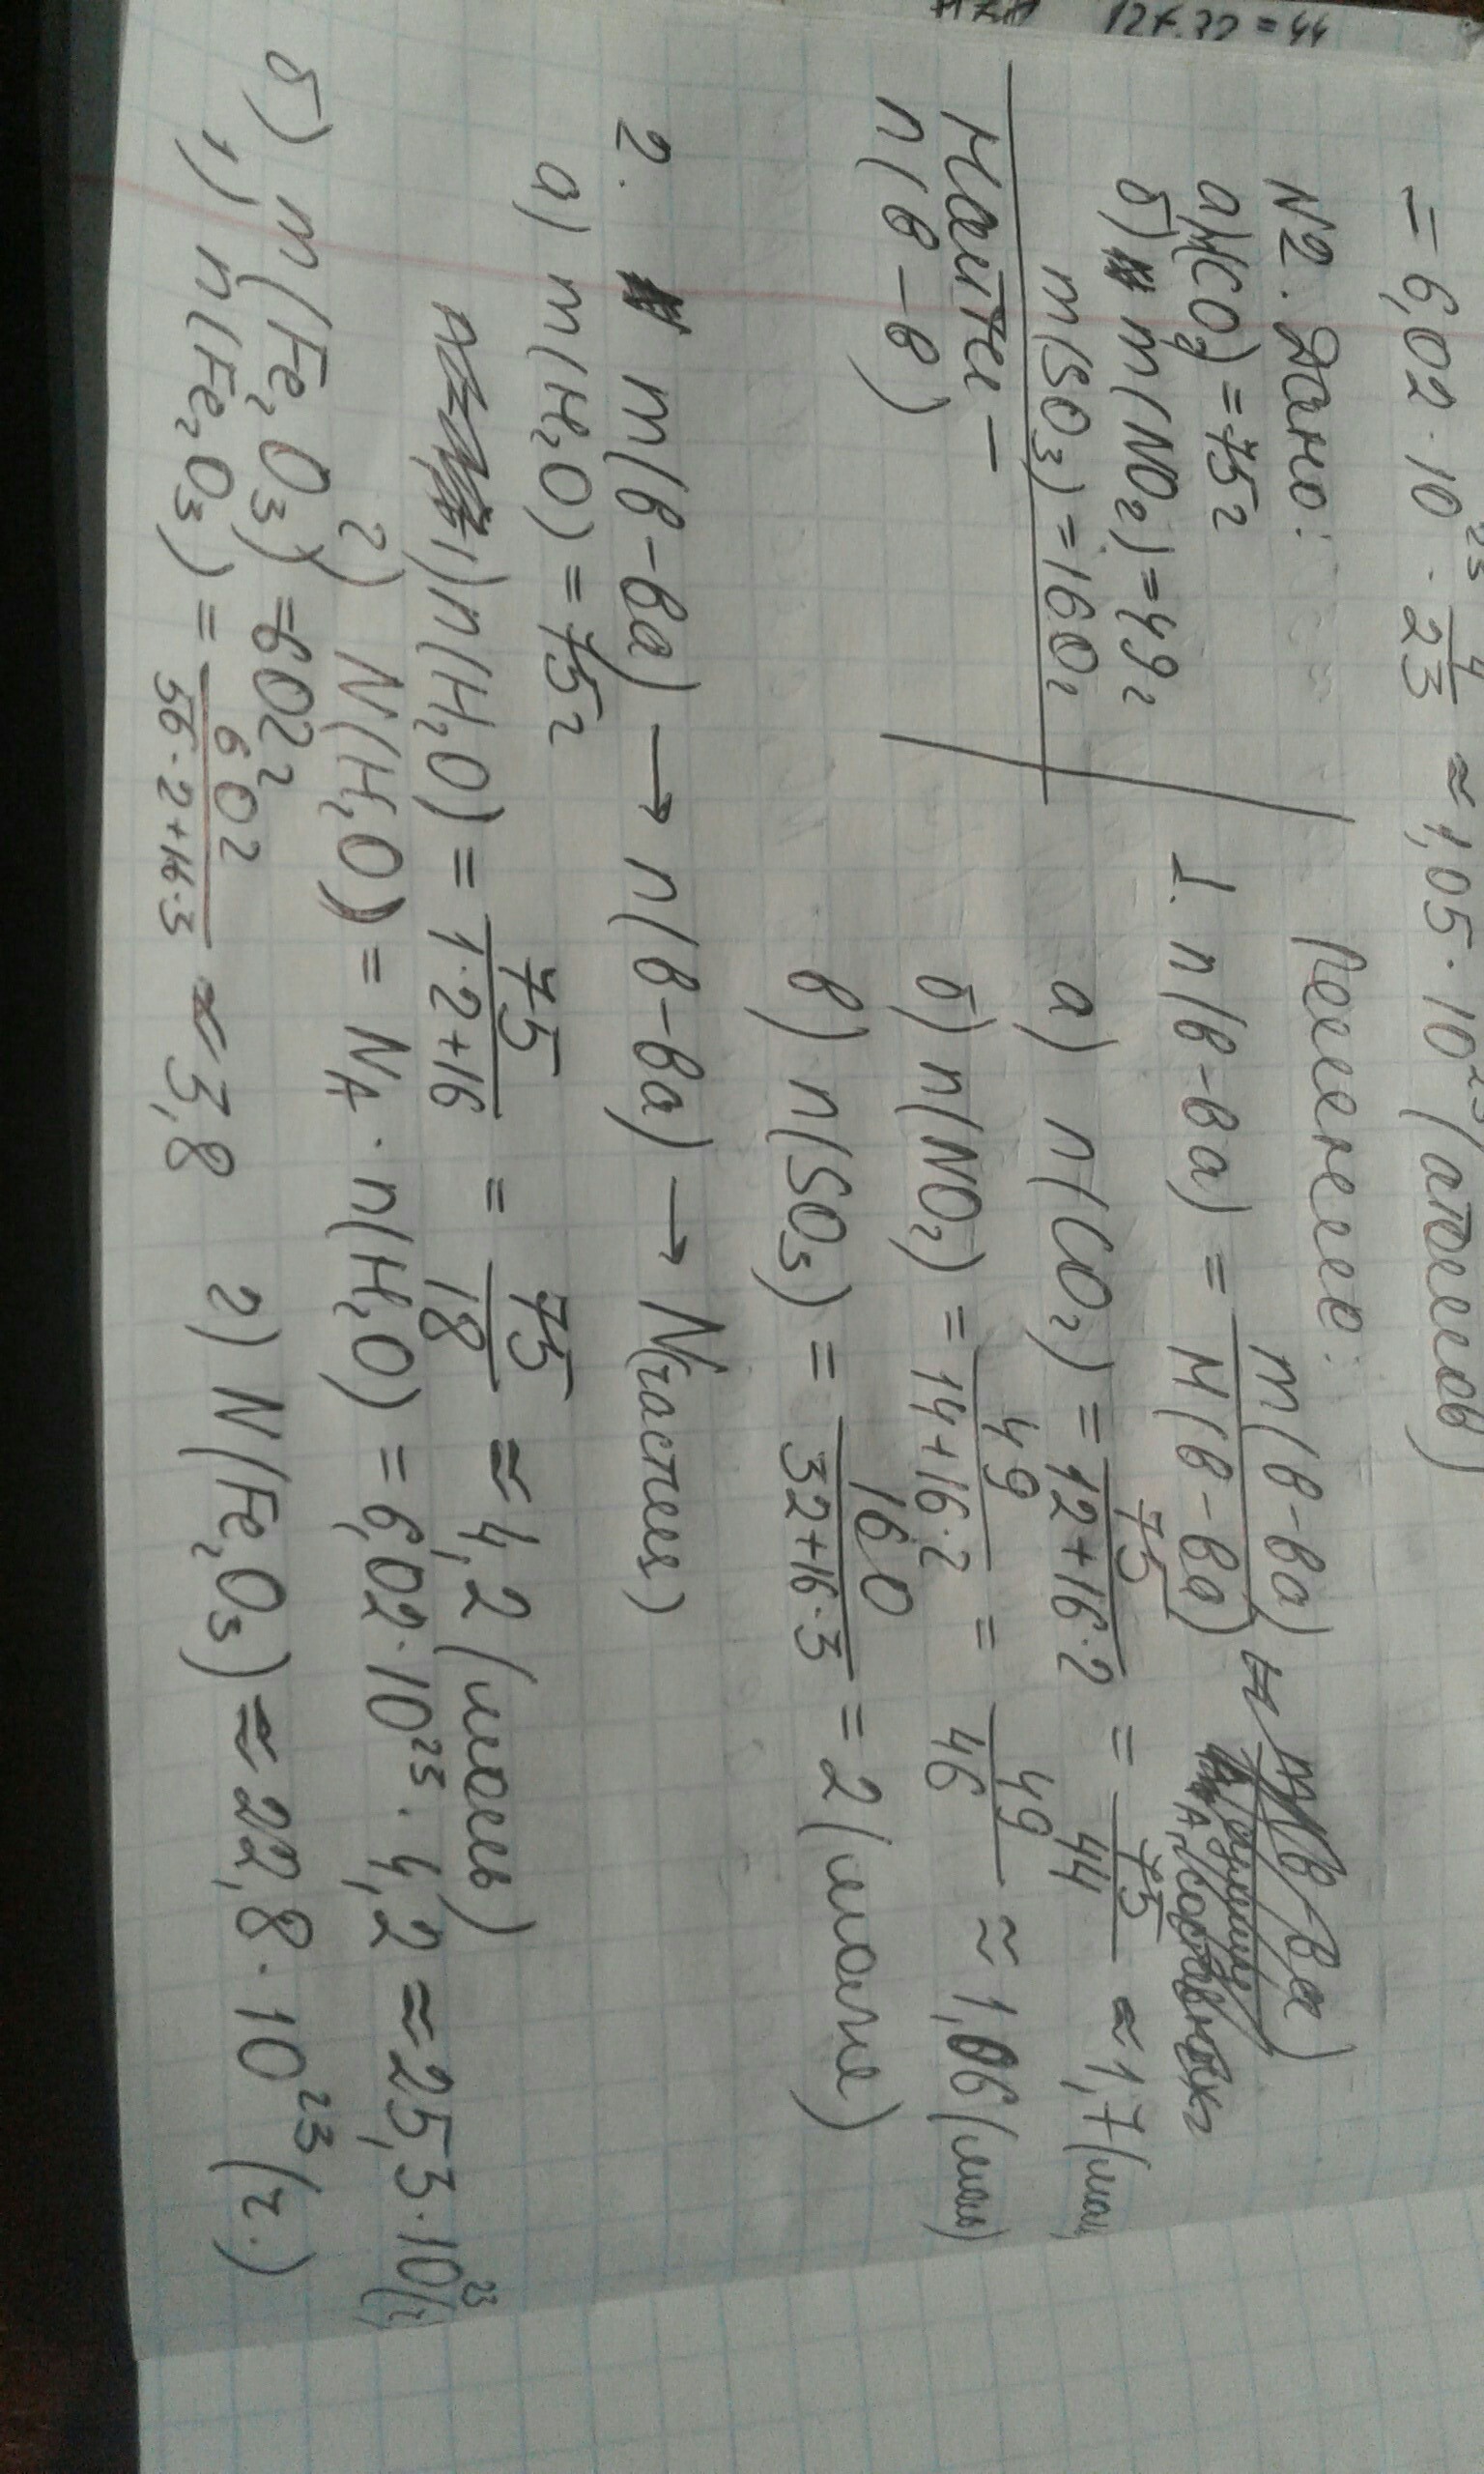 12+32=44
= 6,02 · 10²³ · 4/23 ≈ 1,05 · 10²³ (атомов)
№2. Дано:
а) m(CO₂) = 75г
б) m(NO₂) = 49г
m(SO₃) = 160г
Найти –
n(в-в)
Решение:
1. n(в-ва) = m(в-ва)/M(в-ва)
а) n(CO₂) = 75/12+16·2 = 75/44 ≈ 1,7 (мол
б) n(NO₂) = 49/14+16·2 = 49/46 ≈ 1,06 (моль)
в) n(SO₃) = 160/32+16·3 = 2 (моле)
2. m(в-ва) → n(в-ва) → N(частиц)
а) m(H₂O) = 75г
1) n(H₂O) = 75/1·2+16 = 75/18 ≈ 4,2 (моль)
2) N(H₂O) = NA · n(H₂O) = 6,02·10²³ · 4,2 ≈ 25,3·10²³ (ч)
б) m(Fe₂O₃) = 602г
1) n(Fe₂O₃) = 602/56·2+16·3 ≈ 3,8 2) N(Fe₂O₃) ≈ 22,8 · 10²³ (ч.)